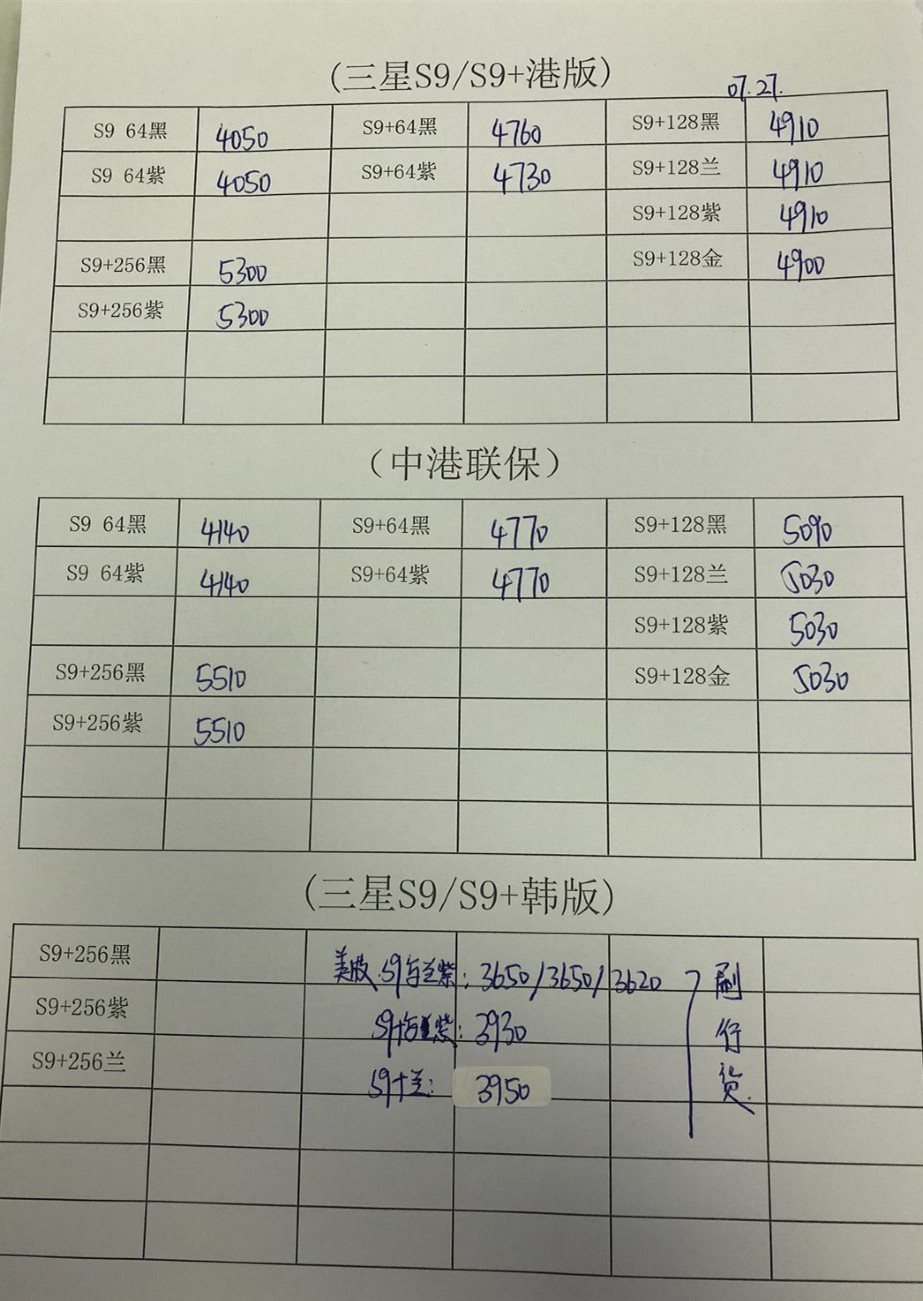 (三星S9/S9+港版)
07.27.
S9 64黑 4050 S9+64黑 4760 S9+128黑 4910
S9 64紫 4050 S9+64紫 4730 S9+128兰 4910
S9+128紫 4910
S9+256黑 5300 S9+128金 4900
S9+256紫 5300
(中港联保)
S9 64黑 4140 S9+64黑 4770 S9+128黑 5090
S9 64紫 4140 S9+64紫 4770 S9+128兰 5030
S9+128紫 5030
S9+256黑 5510 S9+128金 5030
S9+256紫 5510
(三星S9/S9+韩版)
S9+256黑 美版.S9 兰紫: 3650/3650/3620 刷
S9+256紫 S9+ 紫: 3930 行
S9+256兰 S9+兰: 3950 货